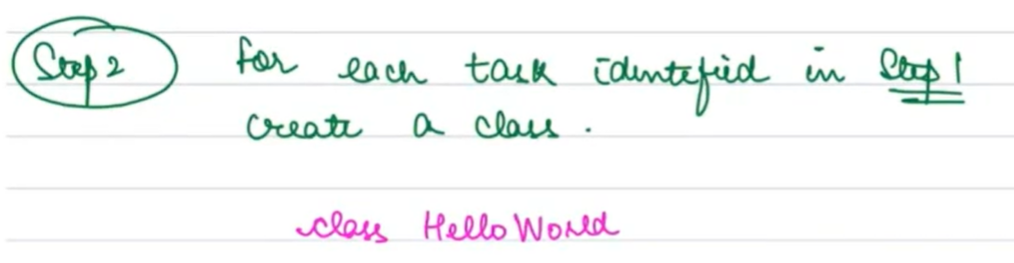 Step 2 for each task identified in Step 1
create a class.
class HelloWorld